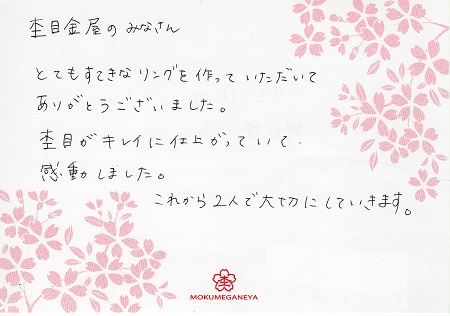 杢目金屋のみなさん
とてもすてきなリングを作っていただいて
ありがとうございました。
杢目がキレイに仕上がっていて、
感動しました。
これから2人で大切にしていきます。
杢
MOKUMEGANEYA